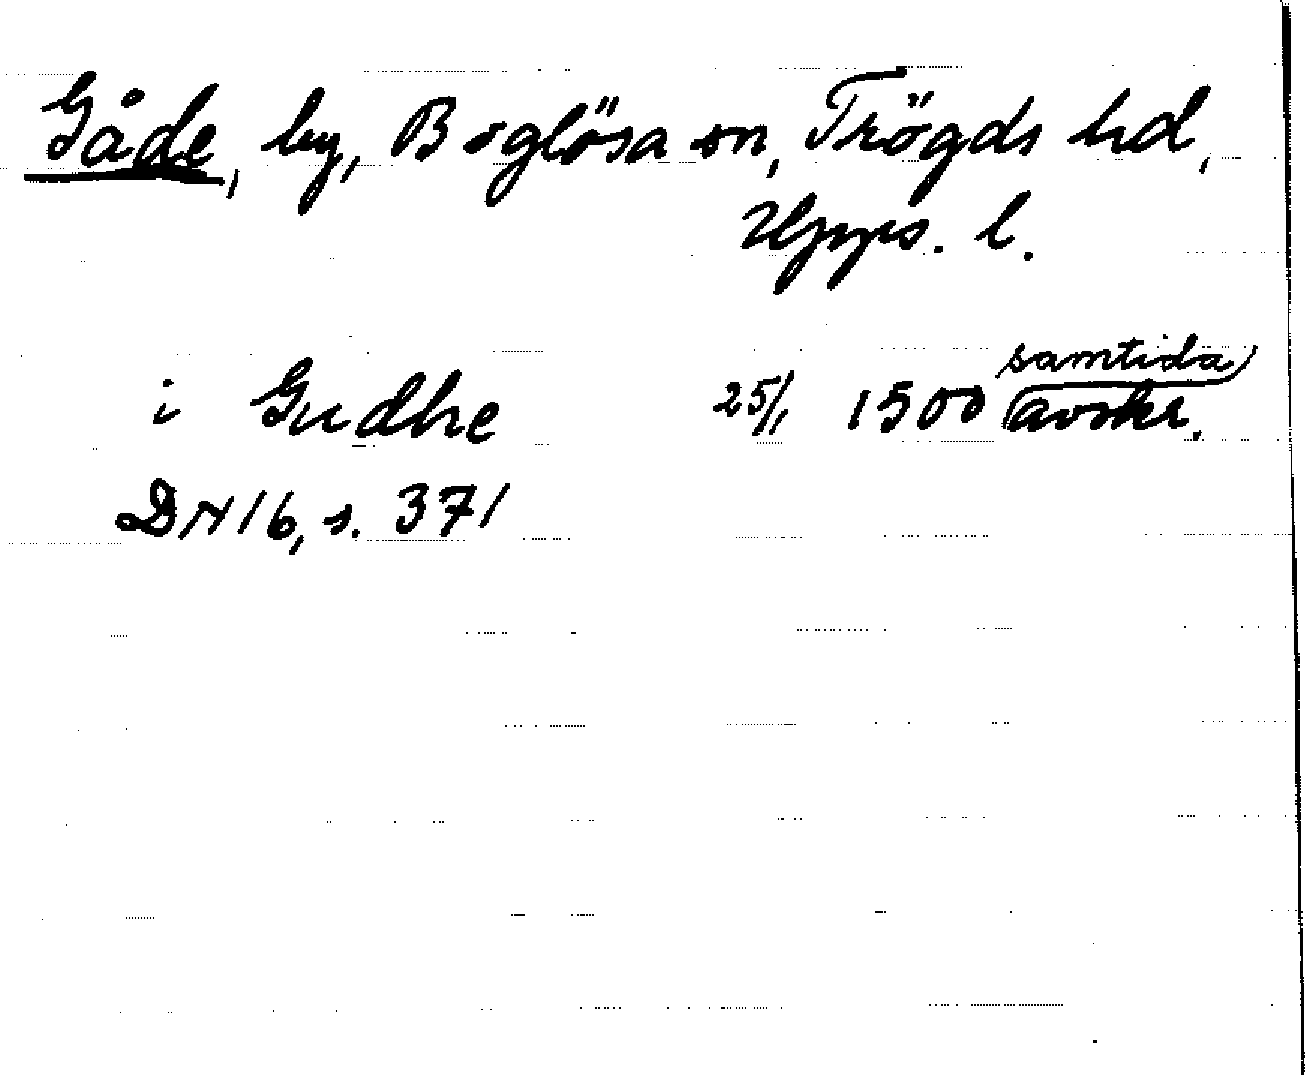 Gåde, by, Boglösa sn, Trögds hd,
Upps. l.
i Gudhe 25/1 1500 samtida avskr.
DN 16, s. 371